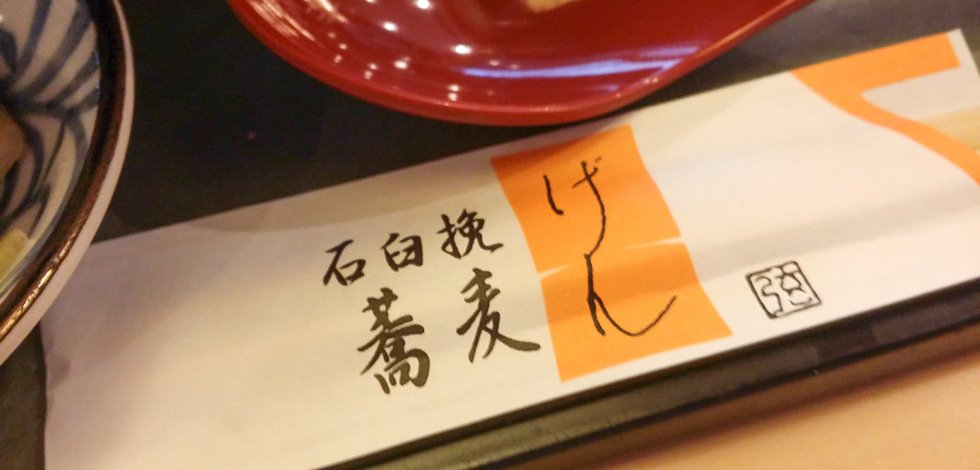 石臼挽
蕎麦
げん
弦